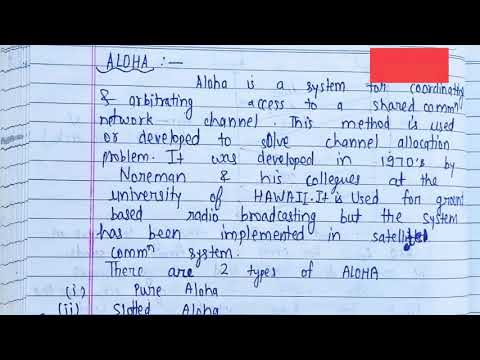 ALOHA :—
Aloha is a system for coordinating
& arbitrating access to a shared commn
network channel. This method is used
or developed to solve channel allocation
problem. It was developed in 1970's by
Noreman & his collegues at the
university of HAWAII. It is Used for ground
based radio broadcasting but the system
has been implemented in satellite
commn system.
There are 2 types of ALOHA
(i) Pure Aloha
(ii) Slotted Aloha